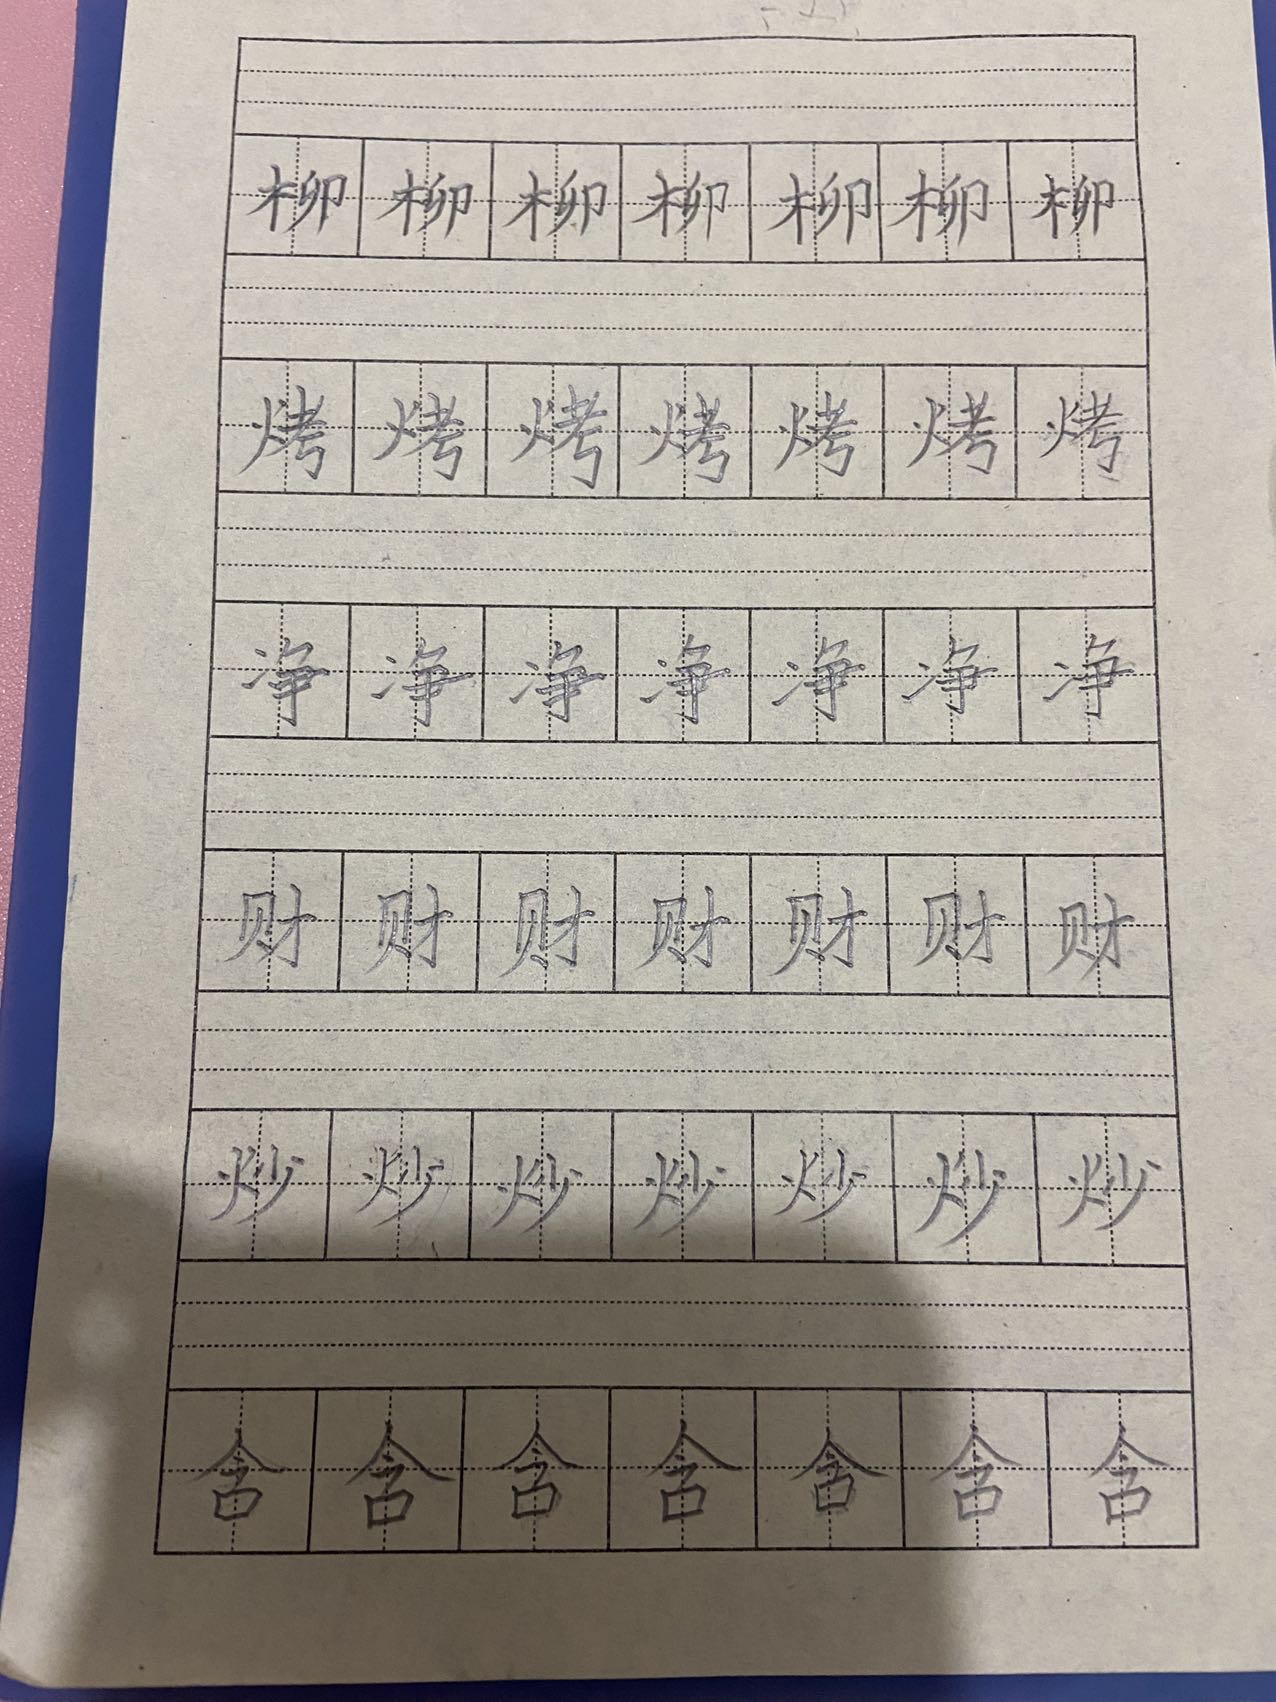 柳柳柳柳柳柳柳
烤烤烤烤烤烤烤
净净净净净净净
财财财财财财财
炒炒炒炒炒炒炒
含含含含含含含